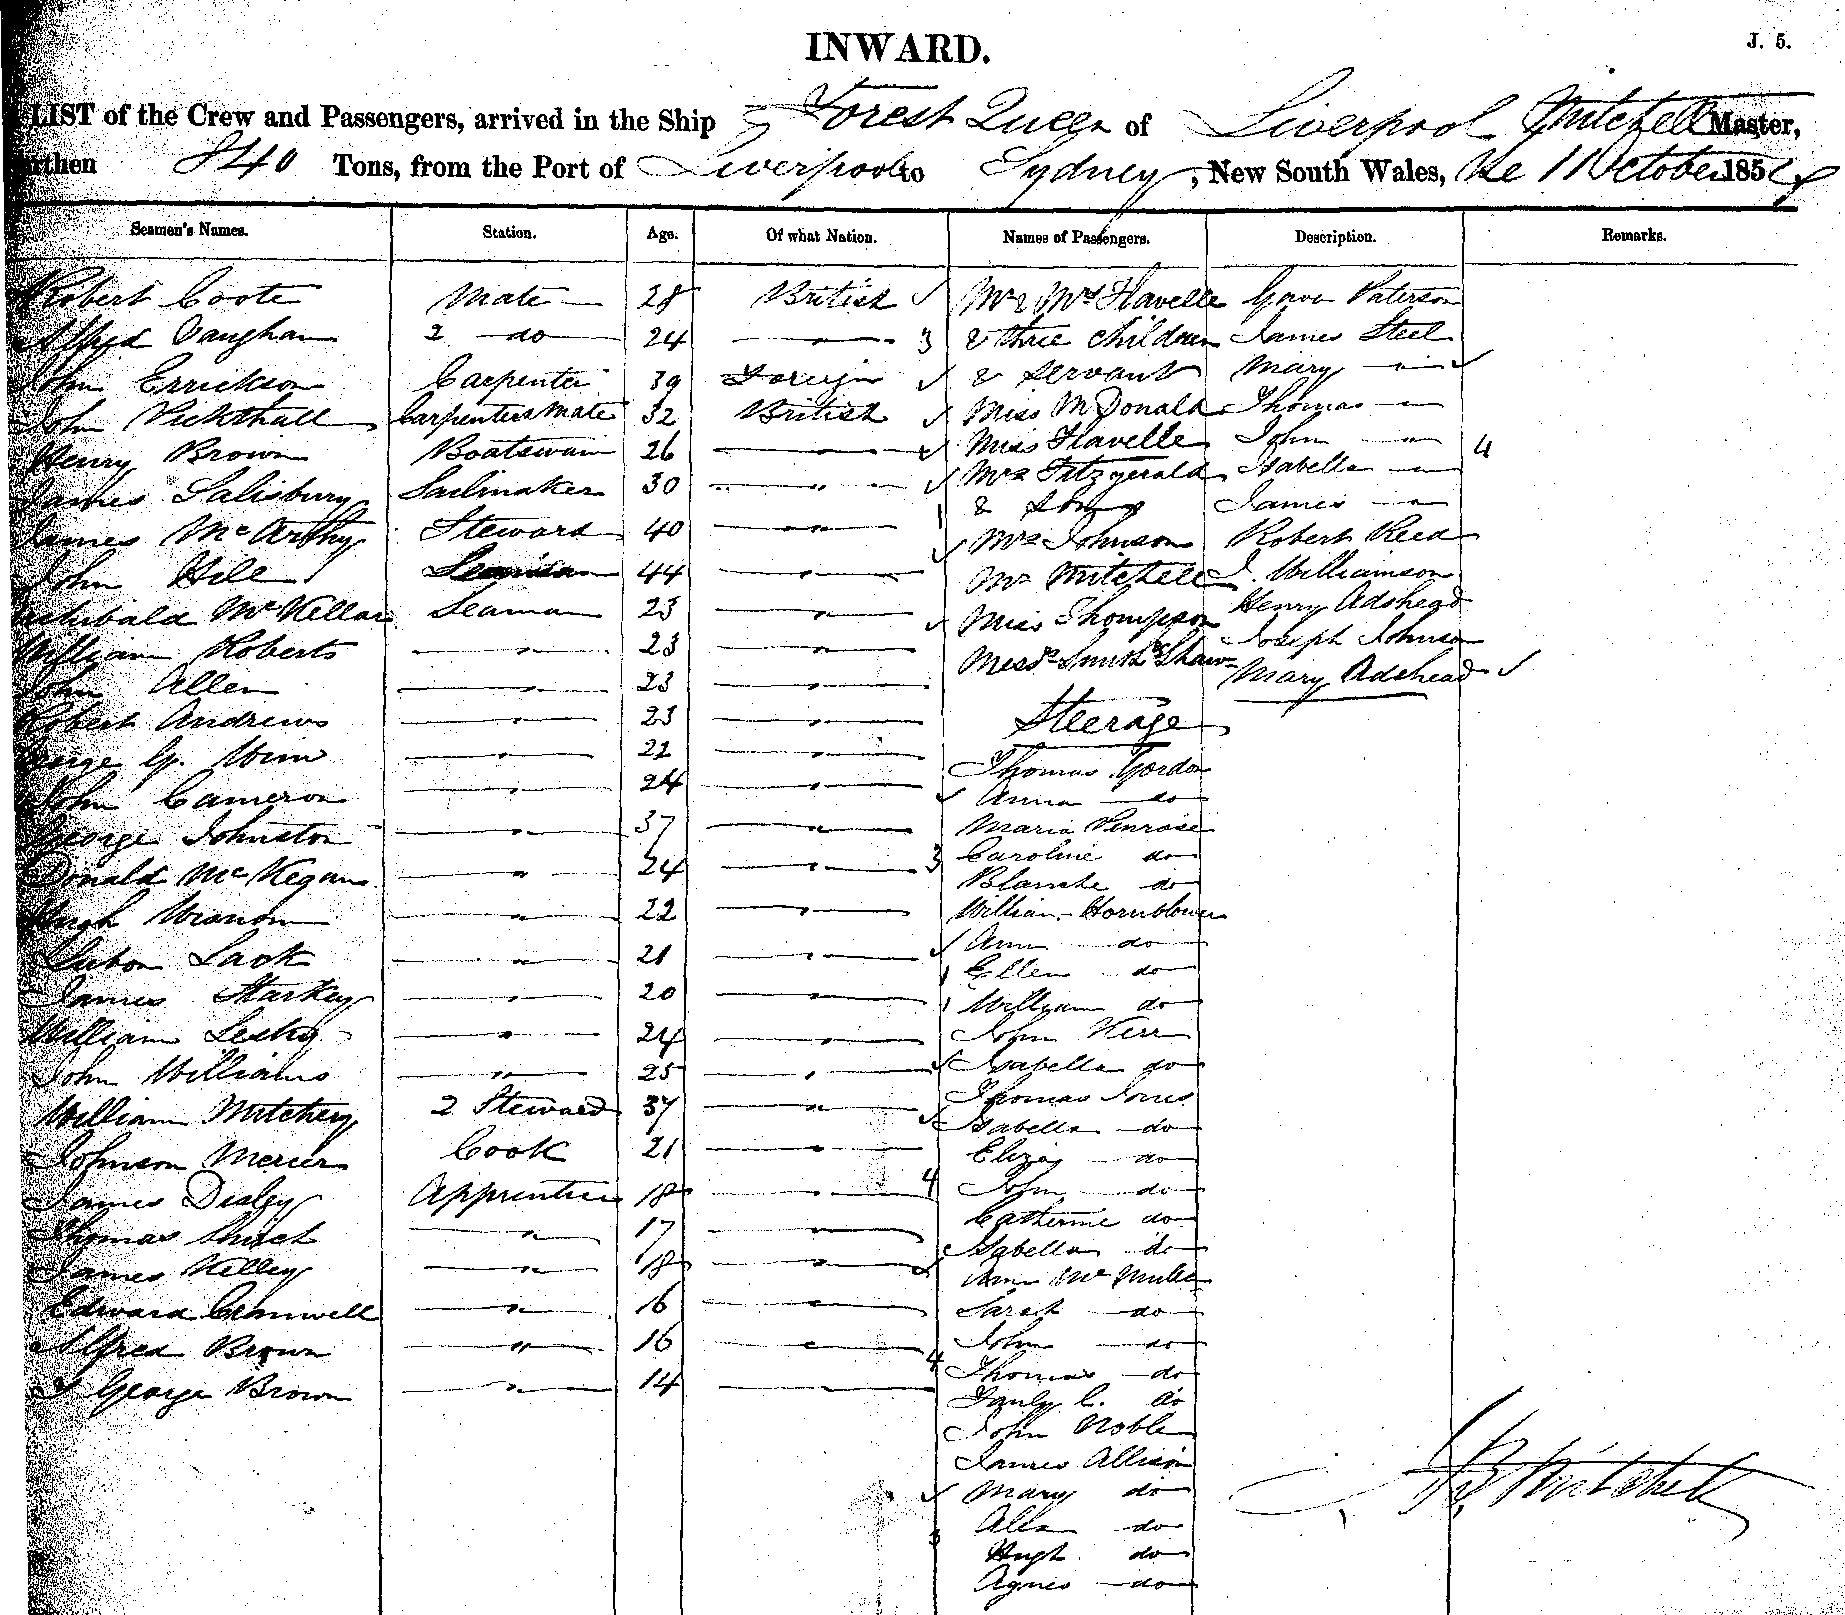 INWARD.
J. 5.
LIST of the Crew and Passengers, arrived in the Ship Forest Queen of Liverpool Mitchell Master,
840 Tons, from the Port of Liverpool to Sydney, New South Wales, the 11 October 185
Seamen's Names. Station. Age. Of what Nation. Names of Passengers. Description. Remarks.
Robert Coote Mate 28 British Mr & Mrs Flavelle Gavin Paterson
Alfred Vaughan 2 do 24 3 & three children James Steel
John Errickson Carpenter 39 Foreign & Servant Mary
John Pickthall Carpenters Mate 32 British Miss McDonald Thomas
Henry Brown Boatswain 26 Miss Flavelle John 4
James Salisbury Sailmaker 30 Mrs Fitzgerald Isabella
James McArthy Steward 40 & Son James
John Hill Seaman 44 Mrs Johnson Robert Reed
Archibald McKellar Seaman 23 Mr Mitchell J. Williamson
William Roberts 23 Miss Thompson Henry Adshead
John Allen 23 Messrs Smith & Shaw Joseph Johnson
Mary Adshead
Robert Andrews 23 Steerage
George G. 22 Thomas Gordon
John Cameron 24 Anna do
George Johnston 37 Maria Penrose
Donald McKegan 24 3 Caroline do
Blanche do
Hugh 22 William Hornblower
Lack 21 Ann do
Ellen do
James Starkey 20 William do
William 24 John Kerr
John Williams 25 Isabella do
William 2 Steward 37 Thomas Jones
Isabella do
Johnson Mercer Cook 21 Eliza do
James Disley Apprentice 18 4 John do
Thomas 17 Catherine do
Isabella do
James Kelley 18 Ann McMullen
Edward Cranwell 16 Sarah do
Alfred Brown 16 John do
J George Brown 14 4 Thomas do
C. do
John Noble
James Allison
Mary do
do
Hugh do
Agnes do
Mitchell